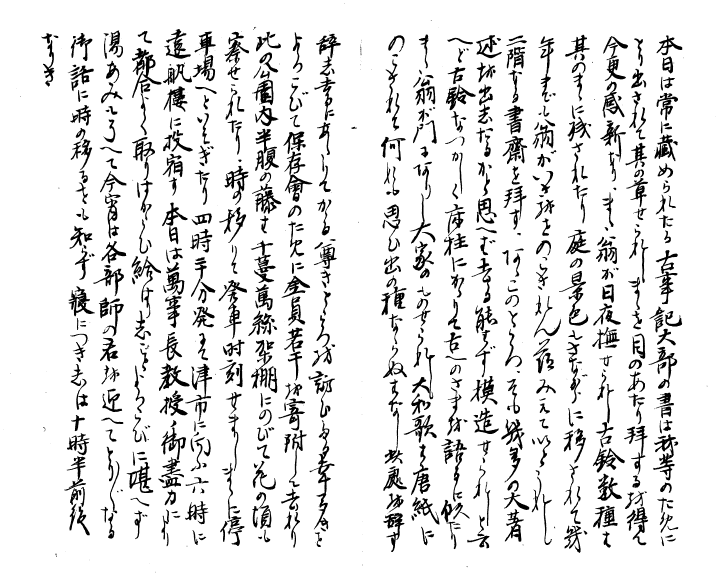 本日は常に蔵められたる古事記大部の書は我等のために
とり出されて其の草せられしまゝを目のあたり拝するを得て
今更の感新なり、また翁が日夜撫せられし古鈴数種も
其のまゝに残されたり 庭の景色もさながらに移されて幾
年までも翁がいさをのこされん
二階なる書齋を拝す、このところこそ幾多の大著
述を出したるかと思へば去る能はず模造せられしと云
へど古鈴なつかしく床柱にかゝりて古へのさまを語るに似たり
また翁が門にありし大家のものせられし大和歌も唐紙に
のこされて何れも思ひ出の種ならぬはなし 此處を辞す
辞するにあたりてかゝる尊きところを訪ひ得る幸多きを
よろこびて保存會のために全員若干を寄附して去れり
此の公園内半腹の藤は千蔓萬絲架棚にのびて花の頃も
察せられたり、時の移りて發車時刻せまりしまゝに停
車場へといそぎたり 四時半分発にて津市に向ふ六時に
遠帆樓に投宿す 本日は萬事長教授の御盡力により
て都合よく取りはからひ給はりしことよろこびに堪へず
湯あみを了へて今宵は各部師の君を迎へてとり〴〵なる
御話に時の移るをも知らず 寝につきしは十時半前後
なりき